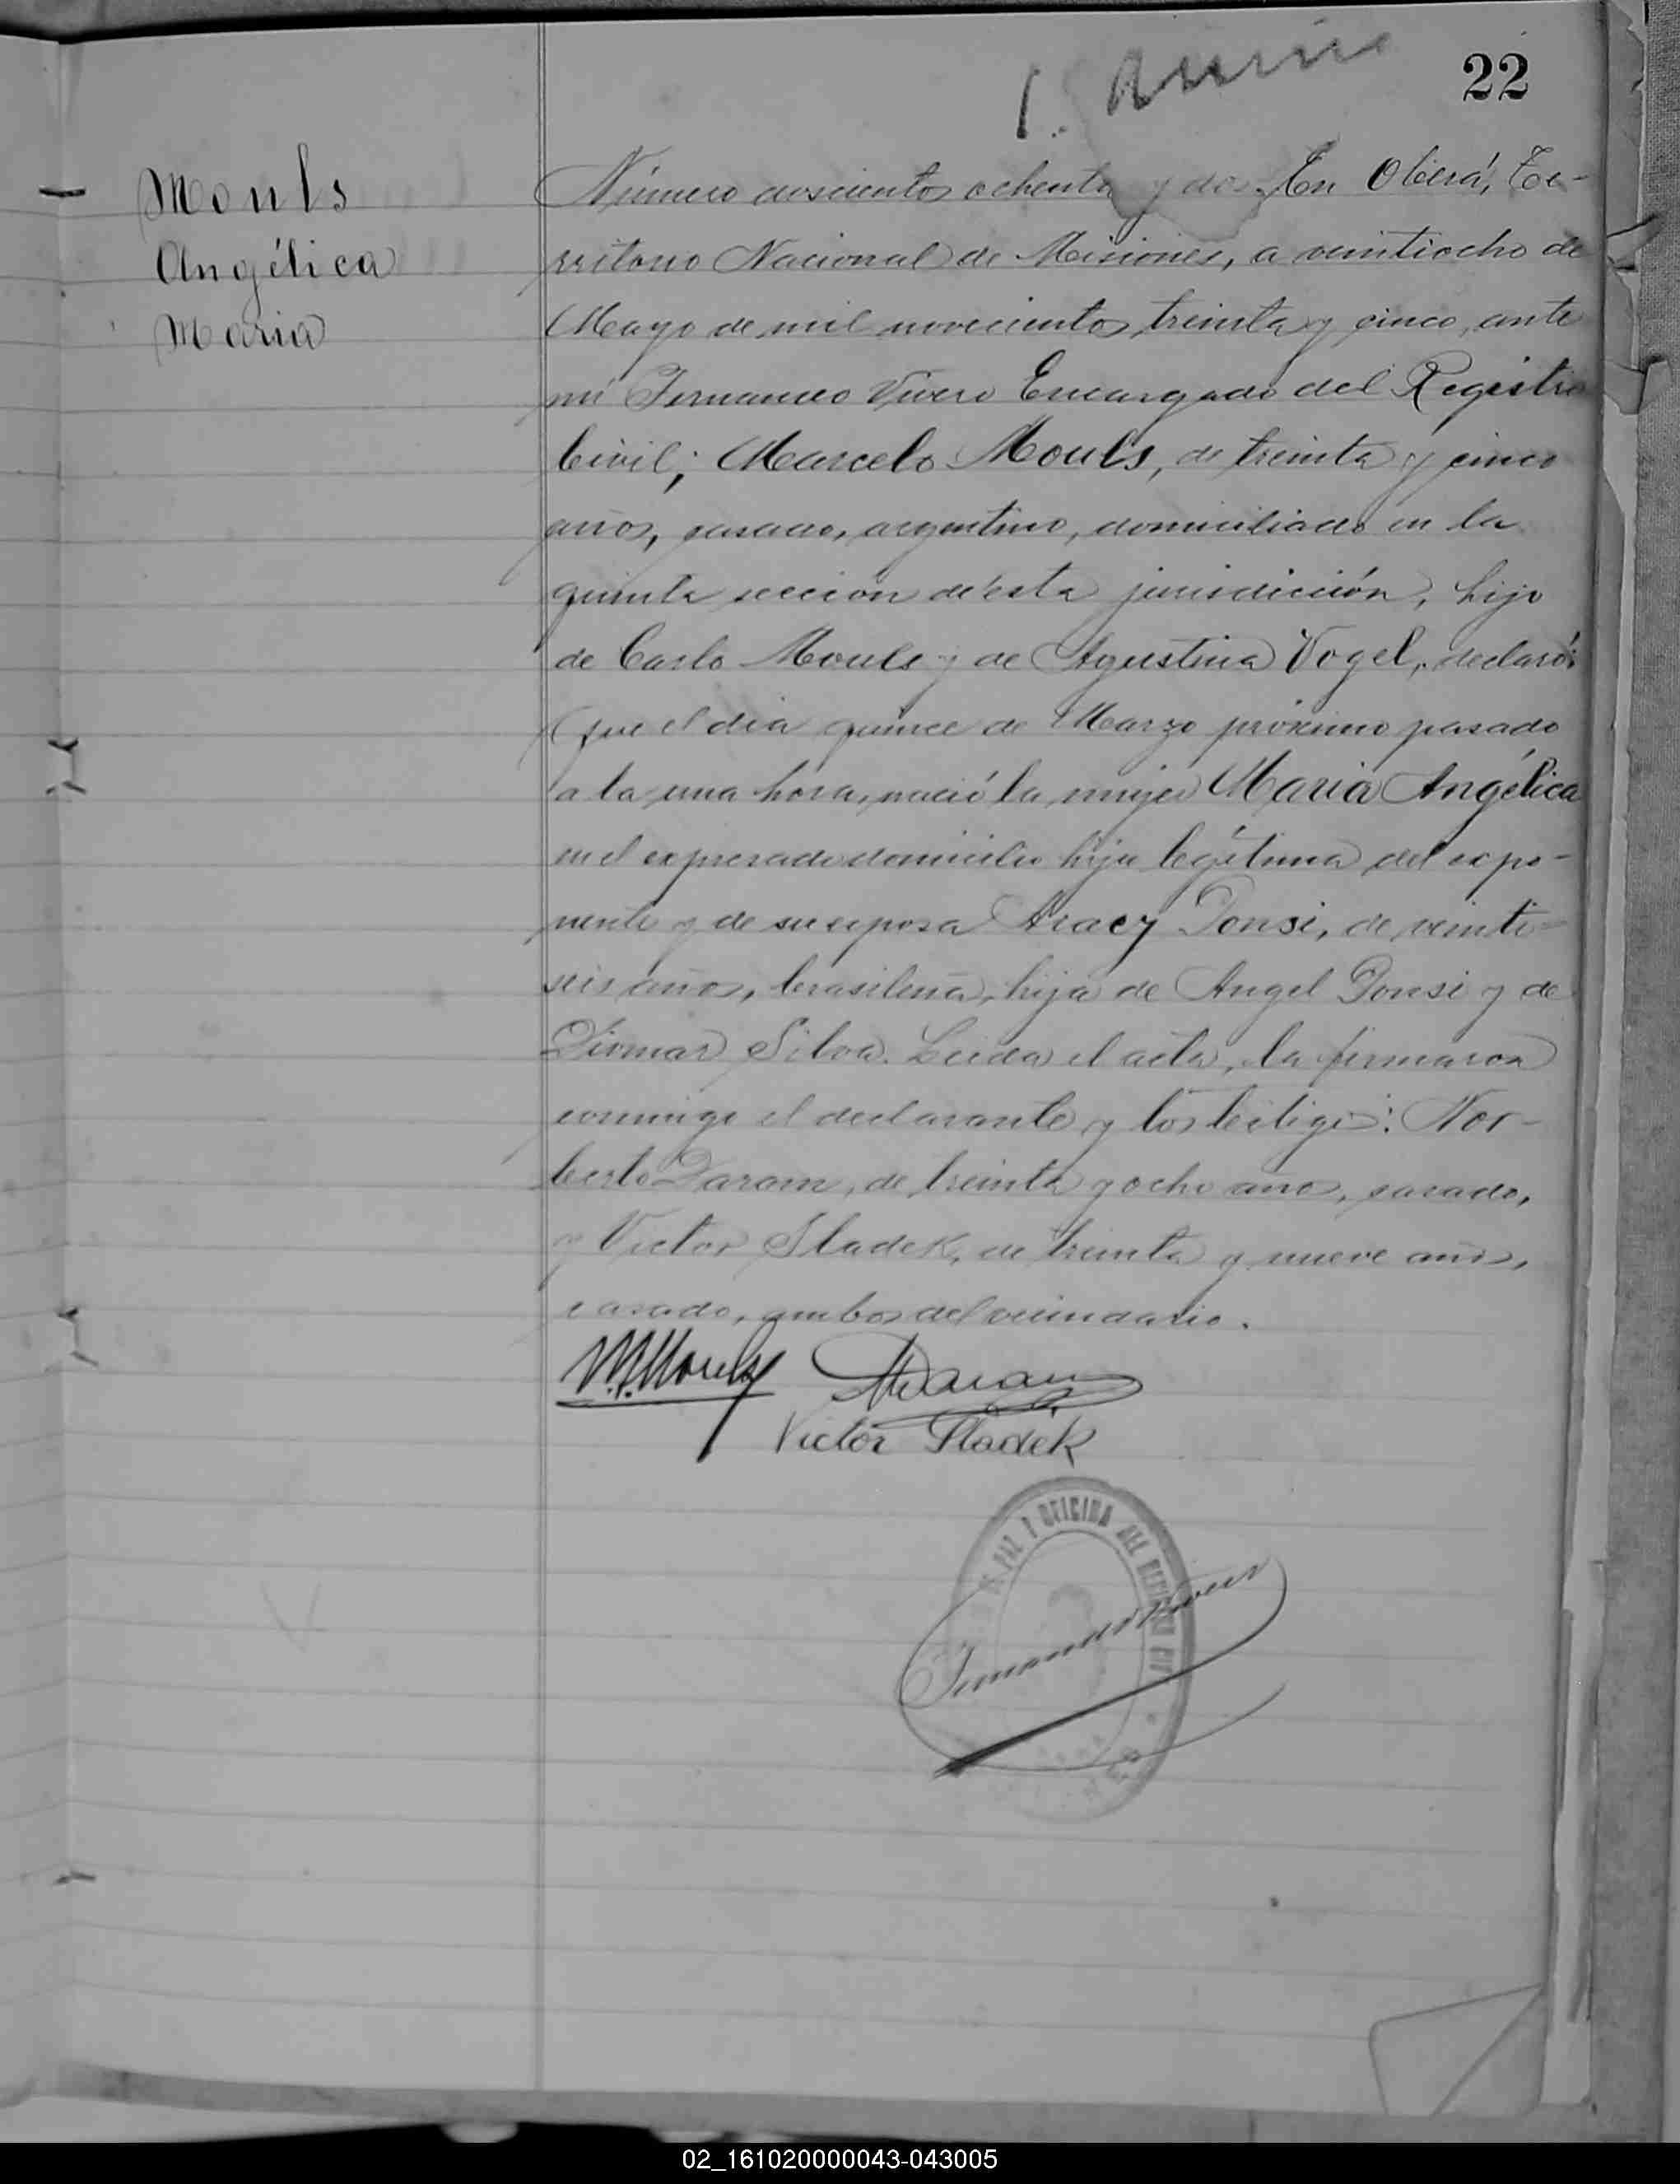 22
Mouls
Angélica
Maria
Número doscientos ochenta y dos. En Oberá, Te-
rritorio Nacional de Misiones, a veintiocho de
Mayo de mil novecientos treinta y cinco, ante
mi Fernando Vivero Encargado del Registro
Civil; Marcelo Mouls, de treinta y cinco
años, casado, argentino, domiciliado en la
quinta sección de ésta jurisdicción, hijo
de Carlo Mouls y de Agustina Vogel, declaró:
Que el día quince de Marzo próximo pasado
a la una hora, nació la mujer Maria Angélica
en el expresado domicilio hija legítima del expo-
nente y de su esposa Aracy Ponsi, de veinti-
seis años, brasileña, hija de Angel Ponsi y de
Diomar Silva. Leida el acta, la firmaron
conmigo el declarante y los testigos: Nor-
berto Daram, de treinta y ocho años, casado,
y Victor Sladek, de treinta y nueve años,
casado, ambos del vecindario.
M. Mouls
Victor Sladek
PAZ Y OFICINA DEL REGISTRO CIVIL
02_161020000043-043005